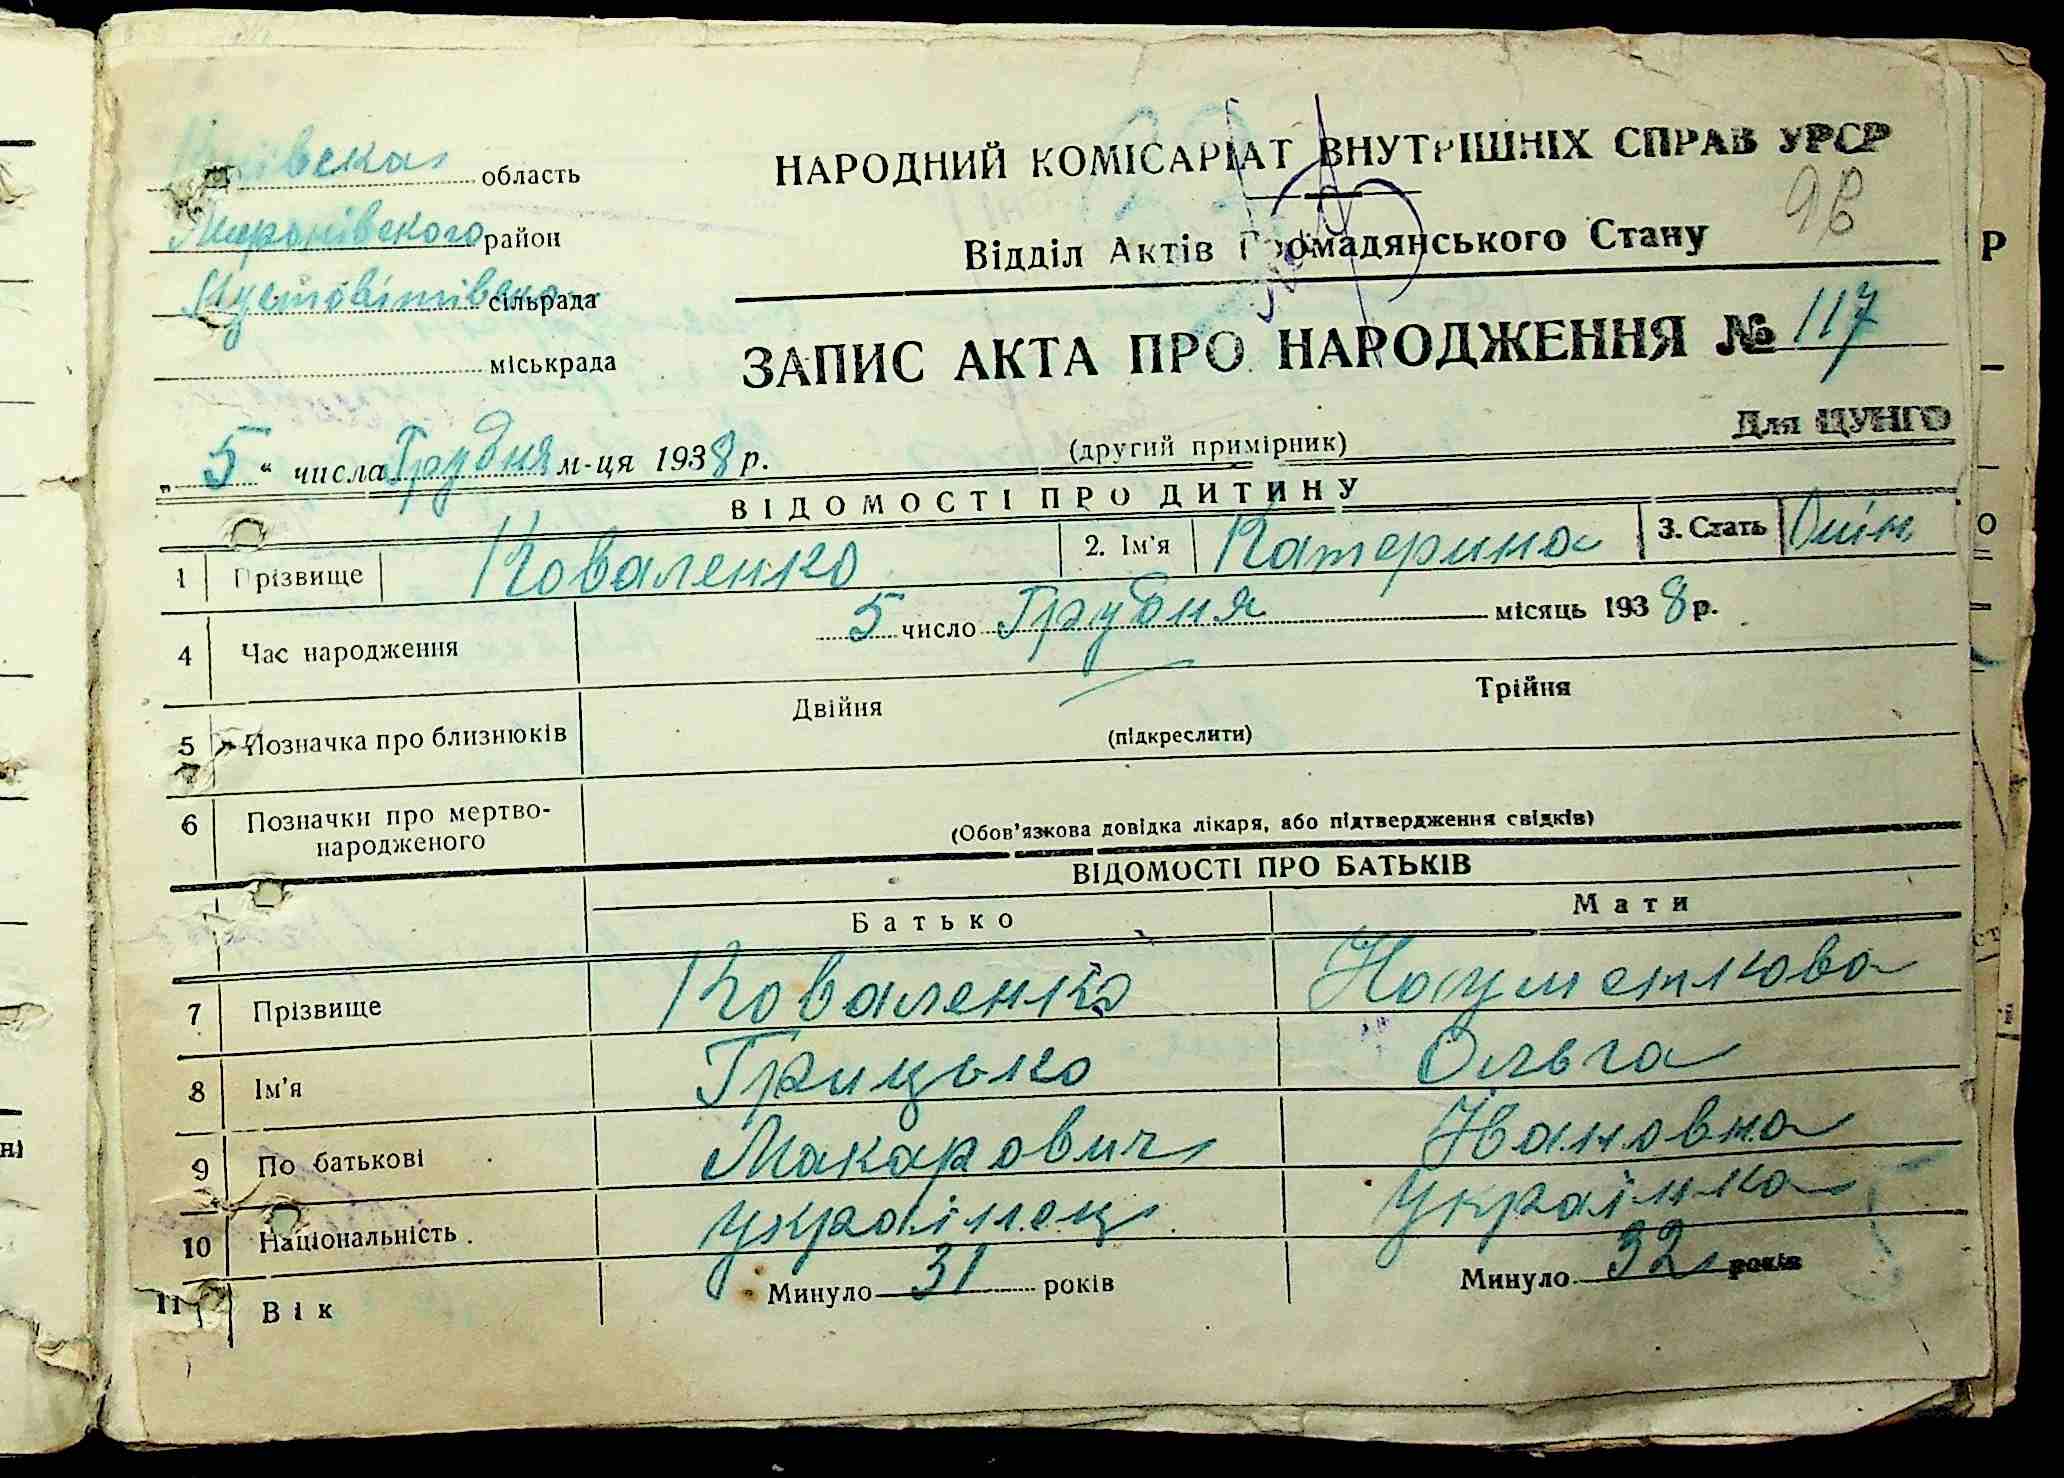 Київська область
Миронівського район
Пустовітівська сільрада
міськрада
НАРОДНИЙ КОМІСАРІАТ ВНУТРІШНІХ СПРАВ УРСР
Відділ Актів Громадянського Стану
ЗАПИС АКТА ПРО НАРОДЖЕННЯ № 117
Для ЦУНГО
„ 5 “ числа Грудня м-ця 1938 р. (другий примірник)
ВІДОМОСТІ ПРО ДИТИНУ
1 Прізвище Коваленко 2. Ім'я Катерина 3. Стать
4 Час народження 5 число Грудня місяць 1938 р.
5 Позначка про близнюків Двійня Трійня
(підкреслити)
6 Позначки про мертво-
народженого
(Обов'язкова довідка лікаря, або підтвердження свідків)
ВІДОМОСТІ ПРО БАТЬКІВ
Батько Мати
7 Прізвище Коваленко
8 Ім'я Грицько Ольга
9 По батькові Макарович Ивановна
10 Національність українец українка
11 Вік Минуло 31 років Минуло 32 років